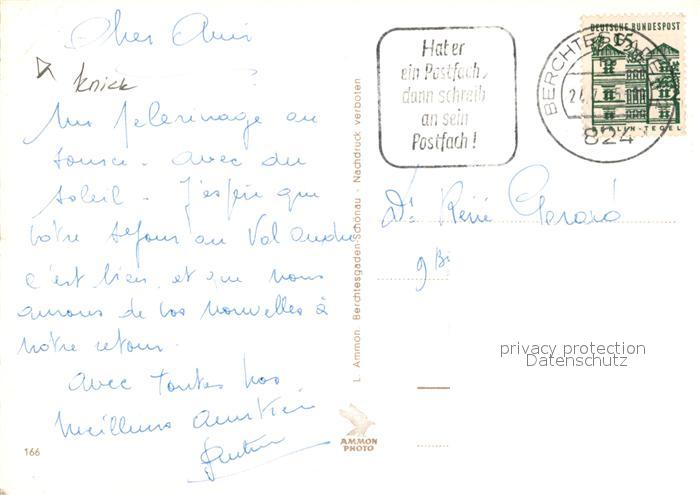 Cher Ami
knick
Un pelerinage au
souci. Avec du
soleil. J'espère que
votre séjour au Val André
c'est bien et que nous
aurons de vos nouvelles à
notre retour.
Avec toutes nos
meilleures amitiés
166
L. Ammon, Berchtesgaden-Schönau - Nachdruck verboten
AMMON
PHOTO
Hat er
ein Postfach,
dann schreib
an sein
Postfach!
BERCHTESGADEN
824
DEUTSCHE BUNDESPOST
15
BERLIN-TEGEL
Dr René Gerard
9 Bi
privacy protection
Datenschutz